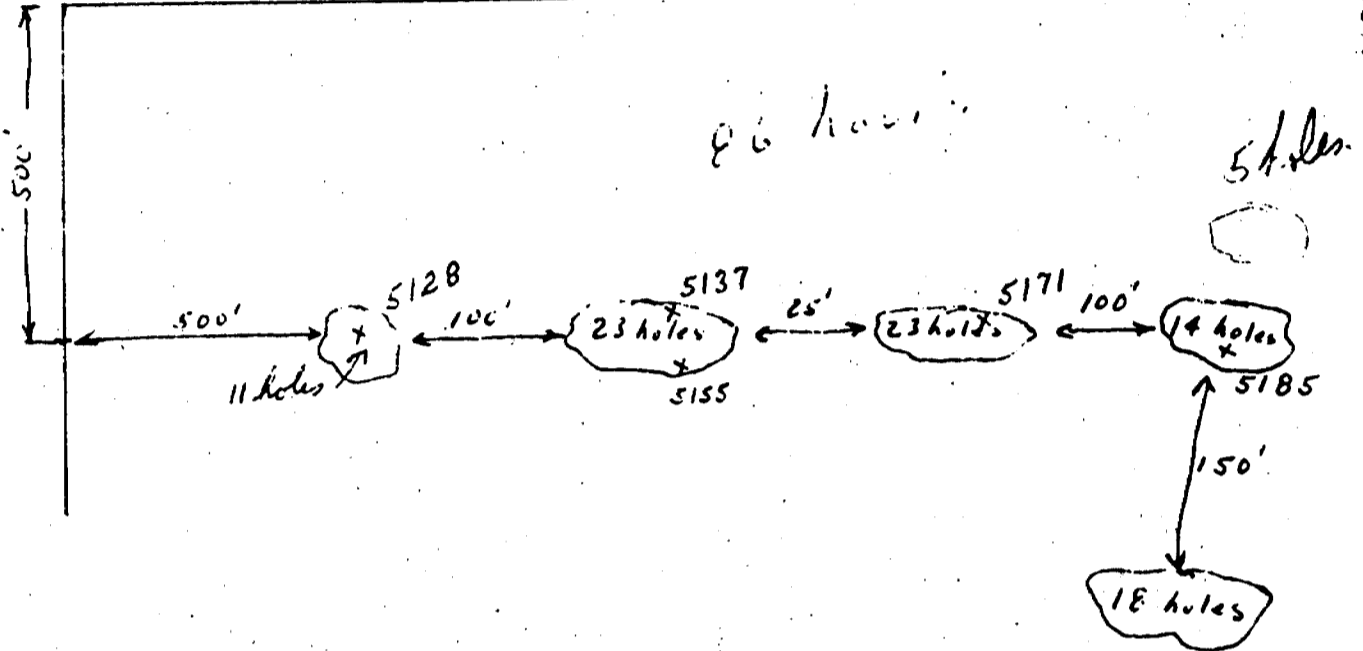 500'
5 holes.
500'
5128
100'
11 holes
5137
23 holes
5155
25'
5171
23 holes
100'
14 holes
5185
150'
18 holes